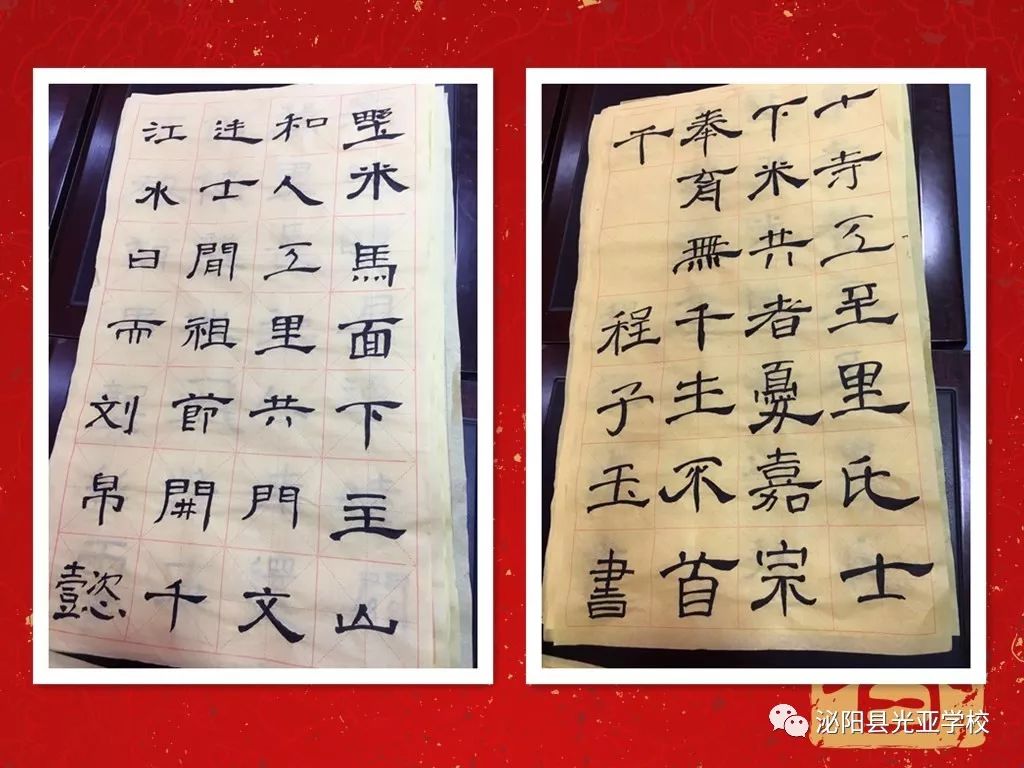 米馬面下主山
和人工里共門文
士間祖節開千
江水曰而刘帛懿
十寺工至里氏士
下米共者憂嘉宗
奉育無千生不首
千
程子玉書
泌阳县光亚学校